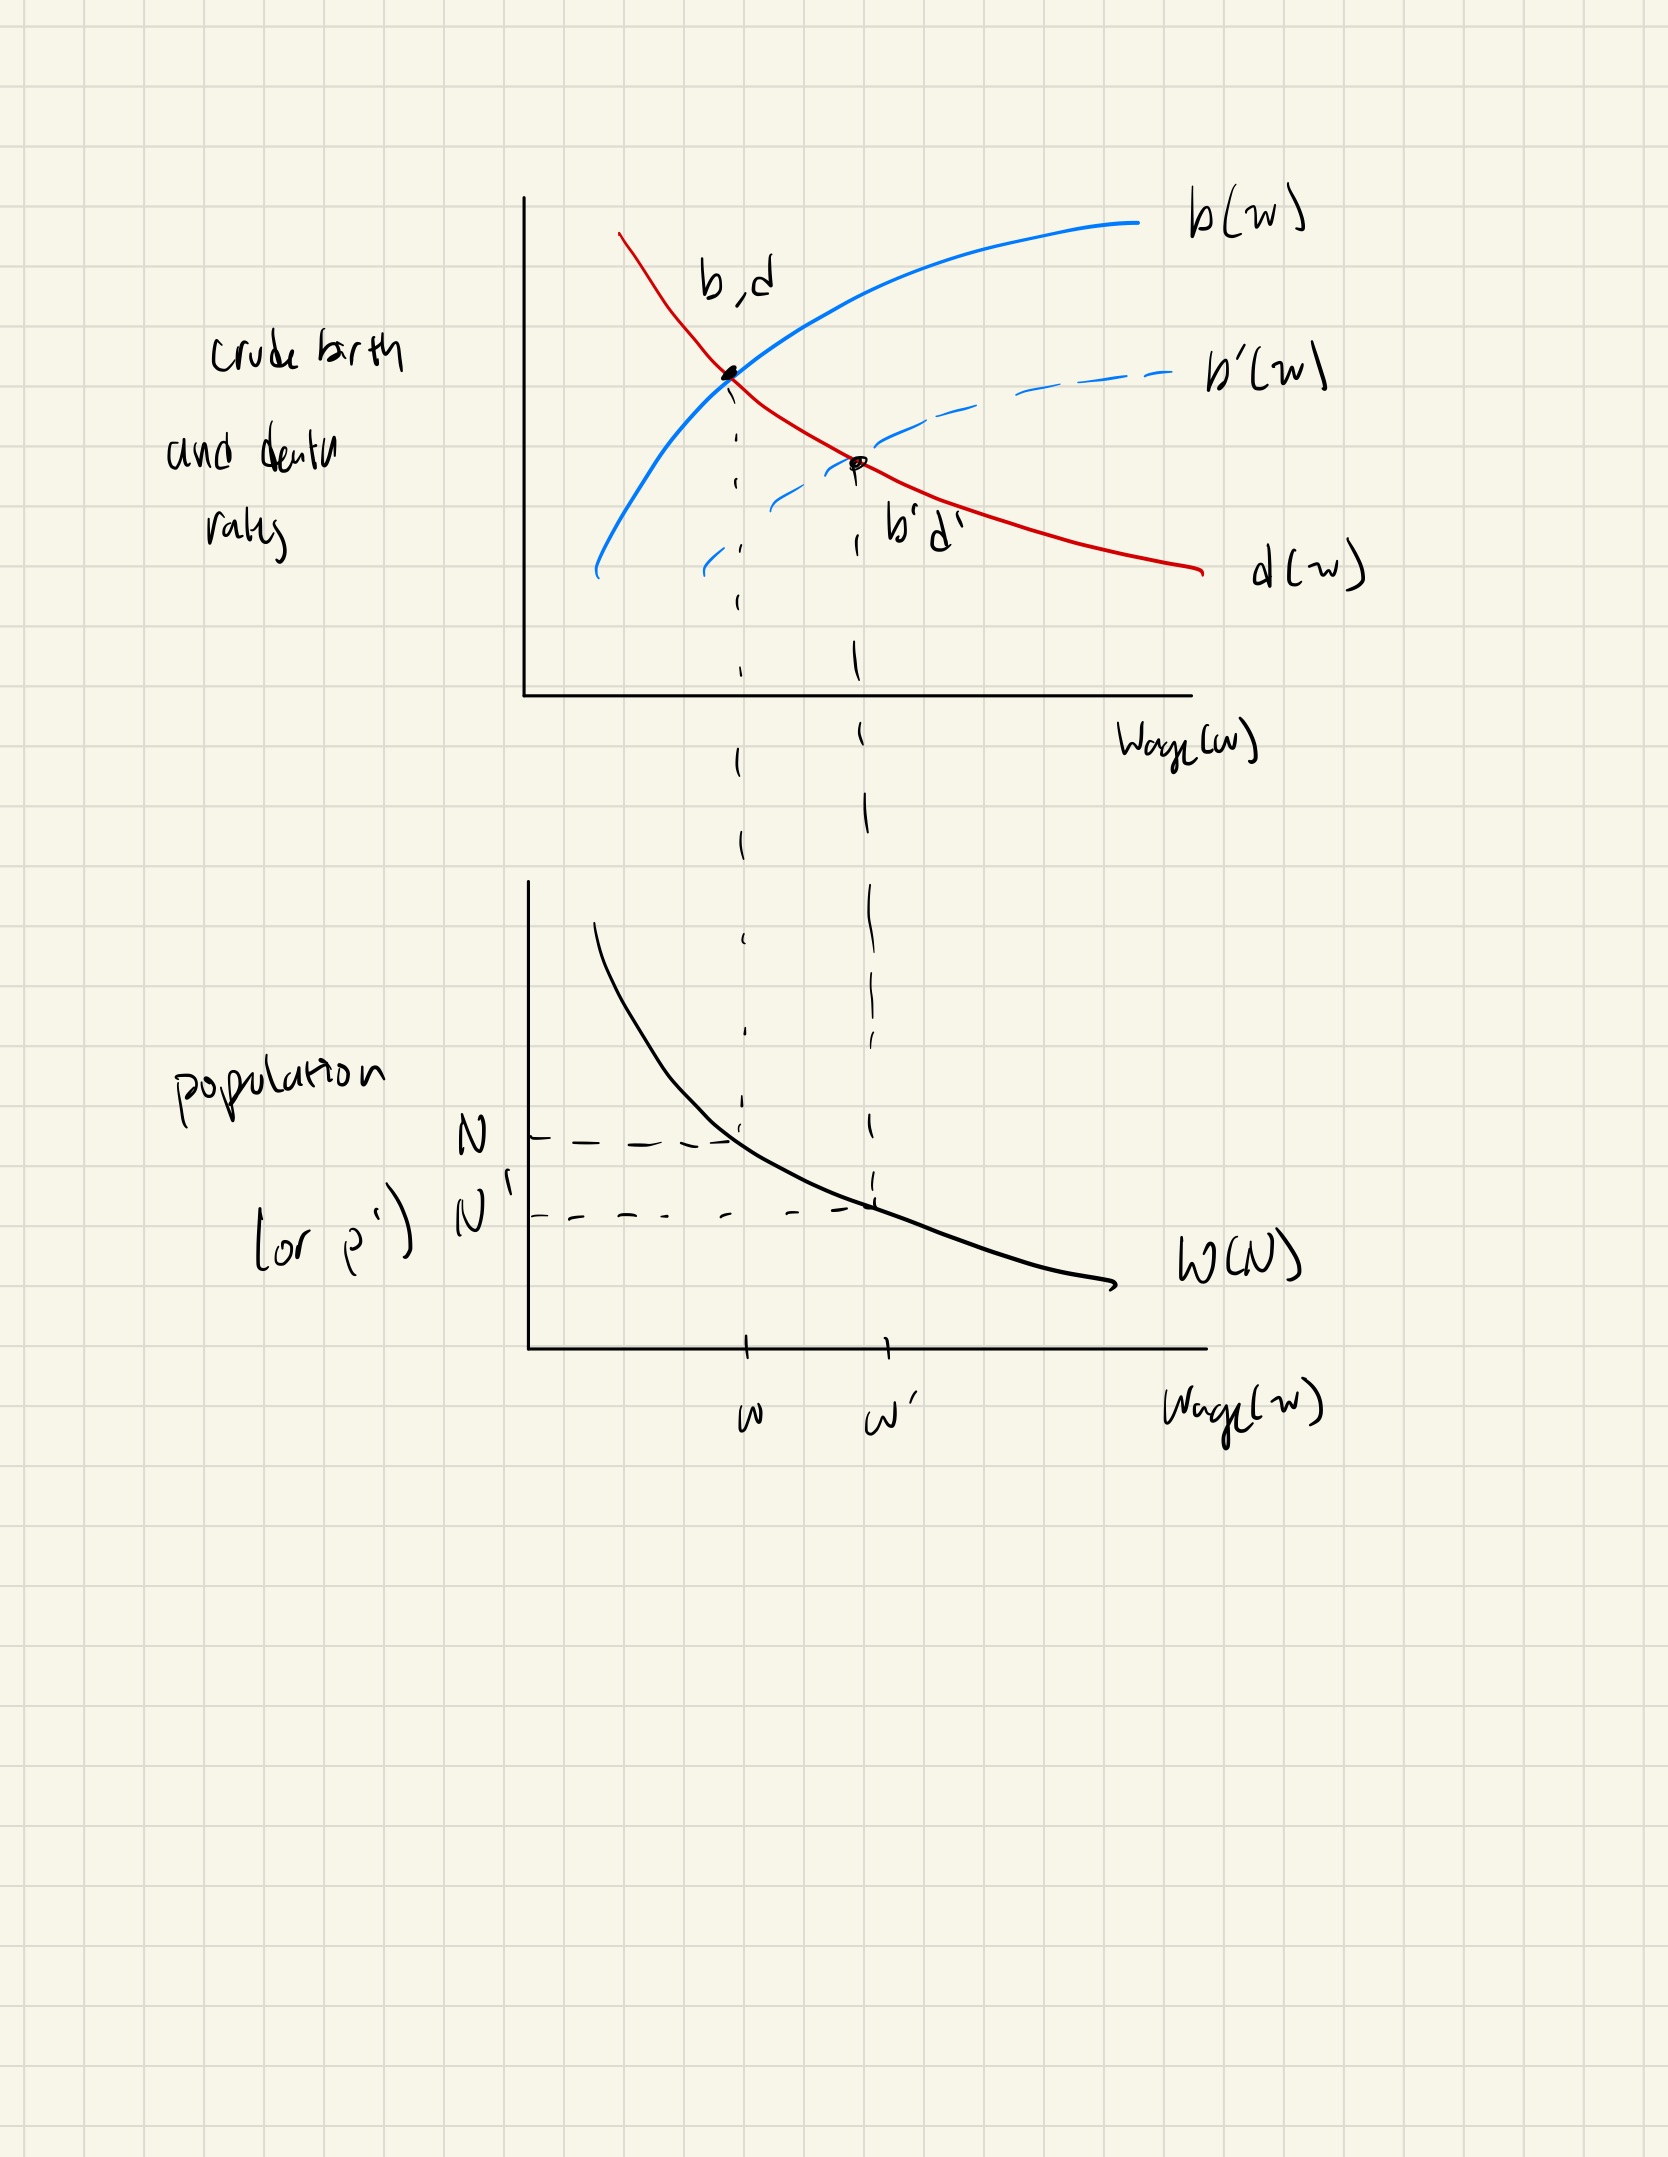 b(w)
b,d
crude birth
b'(w)
and death
rates
b'd'
d(w)
Wage(w)
population
N
N'
(or p')
W(N)
w
w'
Wage(w)